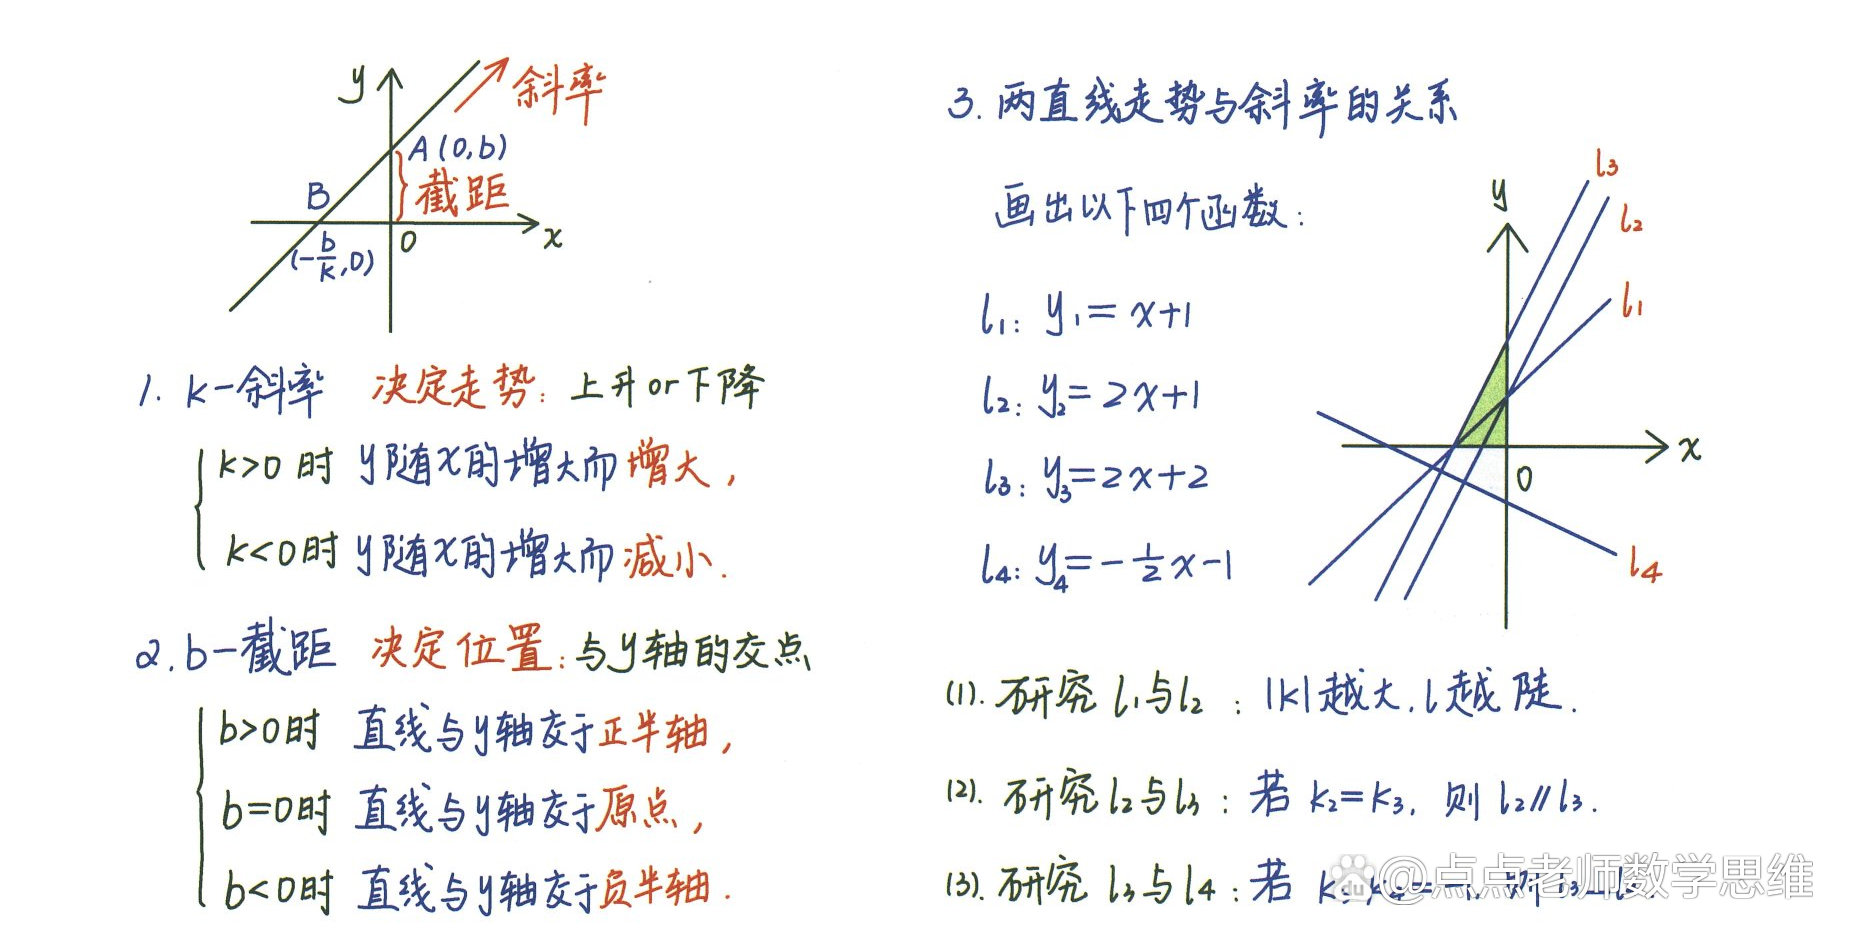 y
斜率
A(0,b)
截距
B
(-b/k,0)
O
x
1. k-斜率 决定走势: 上升or下降
k>0时 y随x的增大而增大,
k<0时 y随x的增大而减小.
2. b-截距 决定位置: 与y轴的交点
b>0时 直线与y轴交于正半轴,
b=0时 直线与y轴交于原点,
b<0时 直线与y轴交于负半轴.
3. 两直线走势与斜率的关系
画出以下四个函数:
l₁: y₁=x+1
l₂: y₂=2x+1
l₃: y₃=2x+2
l₄: y₄=-½x-1
y
l₃
l₂
l₁
x
O
l₄
(1). 研究l₁与l₂: |k|越大,l越陡.
(2). 研究l₂与l₃: 若k₂=k₃, 则l₂∥l₃.
(3). 研究l₃与l₄: 若
Baidu @点点老师数学思维